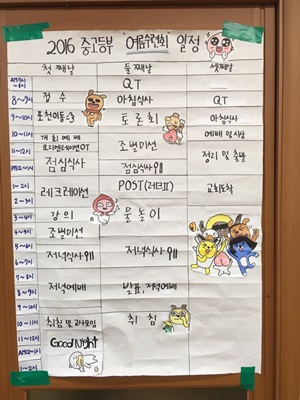 2016 중고등부 여름수련회 일정
첫째날 둘째날 셋째날
QT
8~9시 접수 아침식사 QT
9~10시 토론회 아침식사
10~11시 개회예배
11~12시 오리엔테이션OT 조별미션 정리 및 출발
점심식사 점심식사
1~2시 레크레이션 POST(레크) 교회도착
2~3시
3~4시 강의 물놀이
4~5시 조별미션
5~6시
6~7시 저녁식사 저녁식사
7~8시
8~9시 저녁예배 발표, 저녁예배
9~10시
10~11시 취침 및 교사모임 취침
11~12시 Good Night
1~2시